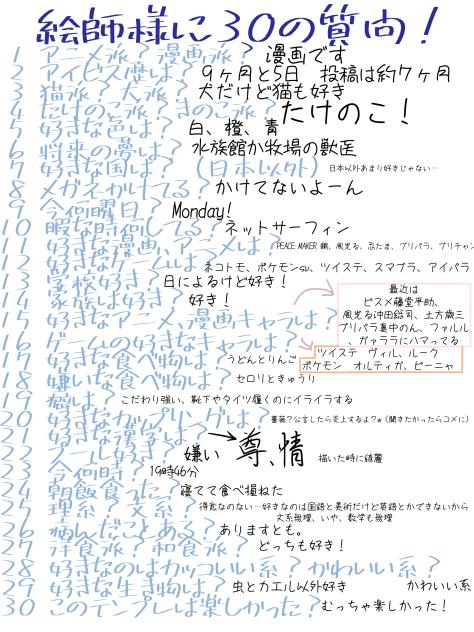 絵師様に30の質問!
1 アニメ派?漫画派? 漫画です
2 アイビス歴は? 9ヶ月と5日 投稿は約7ヶ月
3 猫派?犬派? 犬だけど猫も好き
4 たけのこ派?きのこ派? たけのこ!
5 好きな色は? 白、橙、青
6 将来の夢は? 水族館か牧場の獣医
7 好きな国は?(日本以外) 日本以外あまり好きじゃない…
8 メガネかけてる? かけてないよーん
9 今何曜日? Monday!
10 暇な時何してる? ネットサーフィン
11 好きな漫画、アニメは? PEACE MAKER 鐵、風光る、忍たま、プリパラ、プリチャン
12 好きなゲームは? ネコトモ、ポケモンSV、ツイステ、スマブラ、アイパラ
13 学校好き? 日によるけど好き!
14 家族は好き? 好き!
15 好きなアニメ、漫画キャラは?
最近は
ピスメ藤堂平助、
風光る沖田総司、土方歳三
プリパラ真中のん、ファルル
、ガァララにハマってる
16 ゲームの好きなキャラは?
ツイステ ヴィル、ルーク
ポケモン オルティガ、ピーニャ
17 好きな食べ物は? うどんとりんご
18 嫌いな食べ物は? セロリときゅうり
19 癖は? こだわり強い、靴下やタイツ履くのにイライラする
20 好きなカップリングは? 薔薇?公言したら炎上するよ?w(聞きたかったらコメに)
21 好きな漢字は? 尊、情 描いた時に綺麗
22 プール好き? 嫌い
23 今何時? 19時46分
24 朝飯食った? 寝てて食べ損ねた
25 理系?文系? 得意なのない…好きなのは国語と美術だけど英語とかできないから
文系無理、いや、数学も無理
26 病んだことある? ありますとも。
27 洋食派?和食派? どっちも好き!
28 好きなのはカッコいい系?かわいい系?
かわいい系
29 好きな生き物は? 虫とカエル以外好き
30 このテンプレは楽しかった? むっちゃ楽しかった!